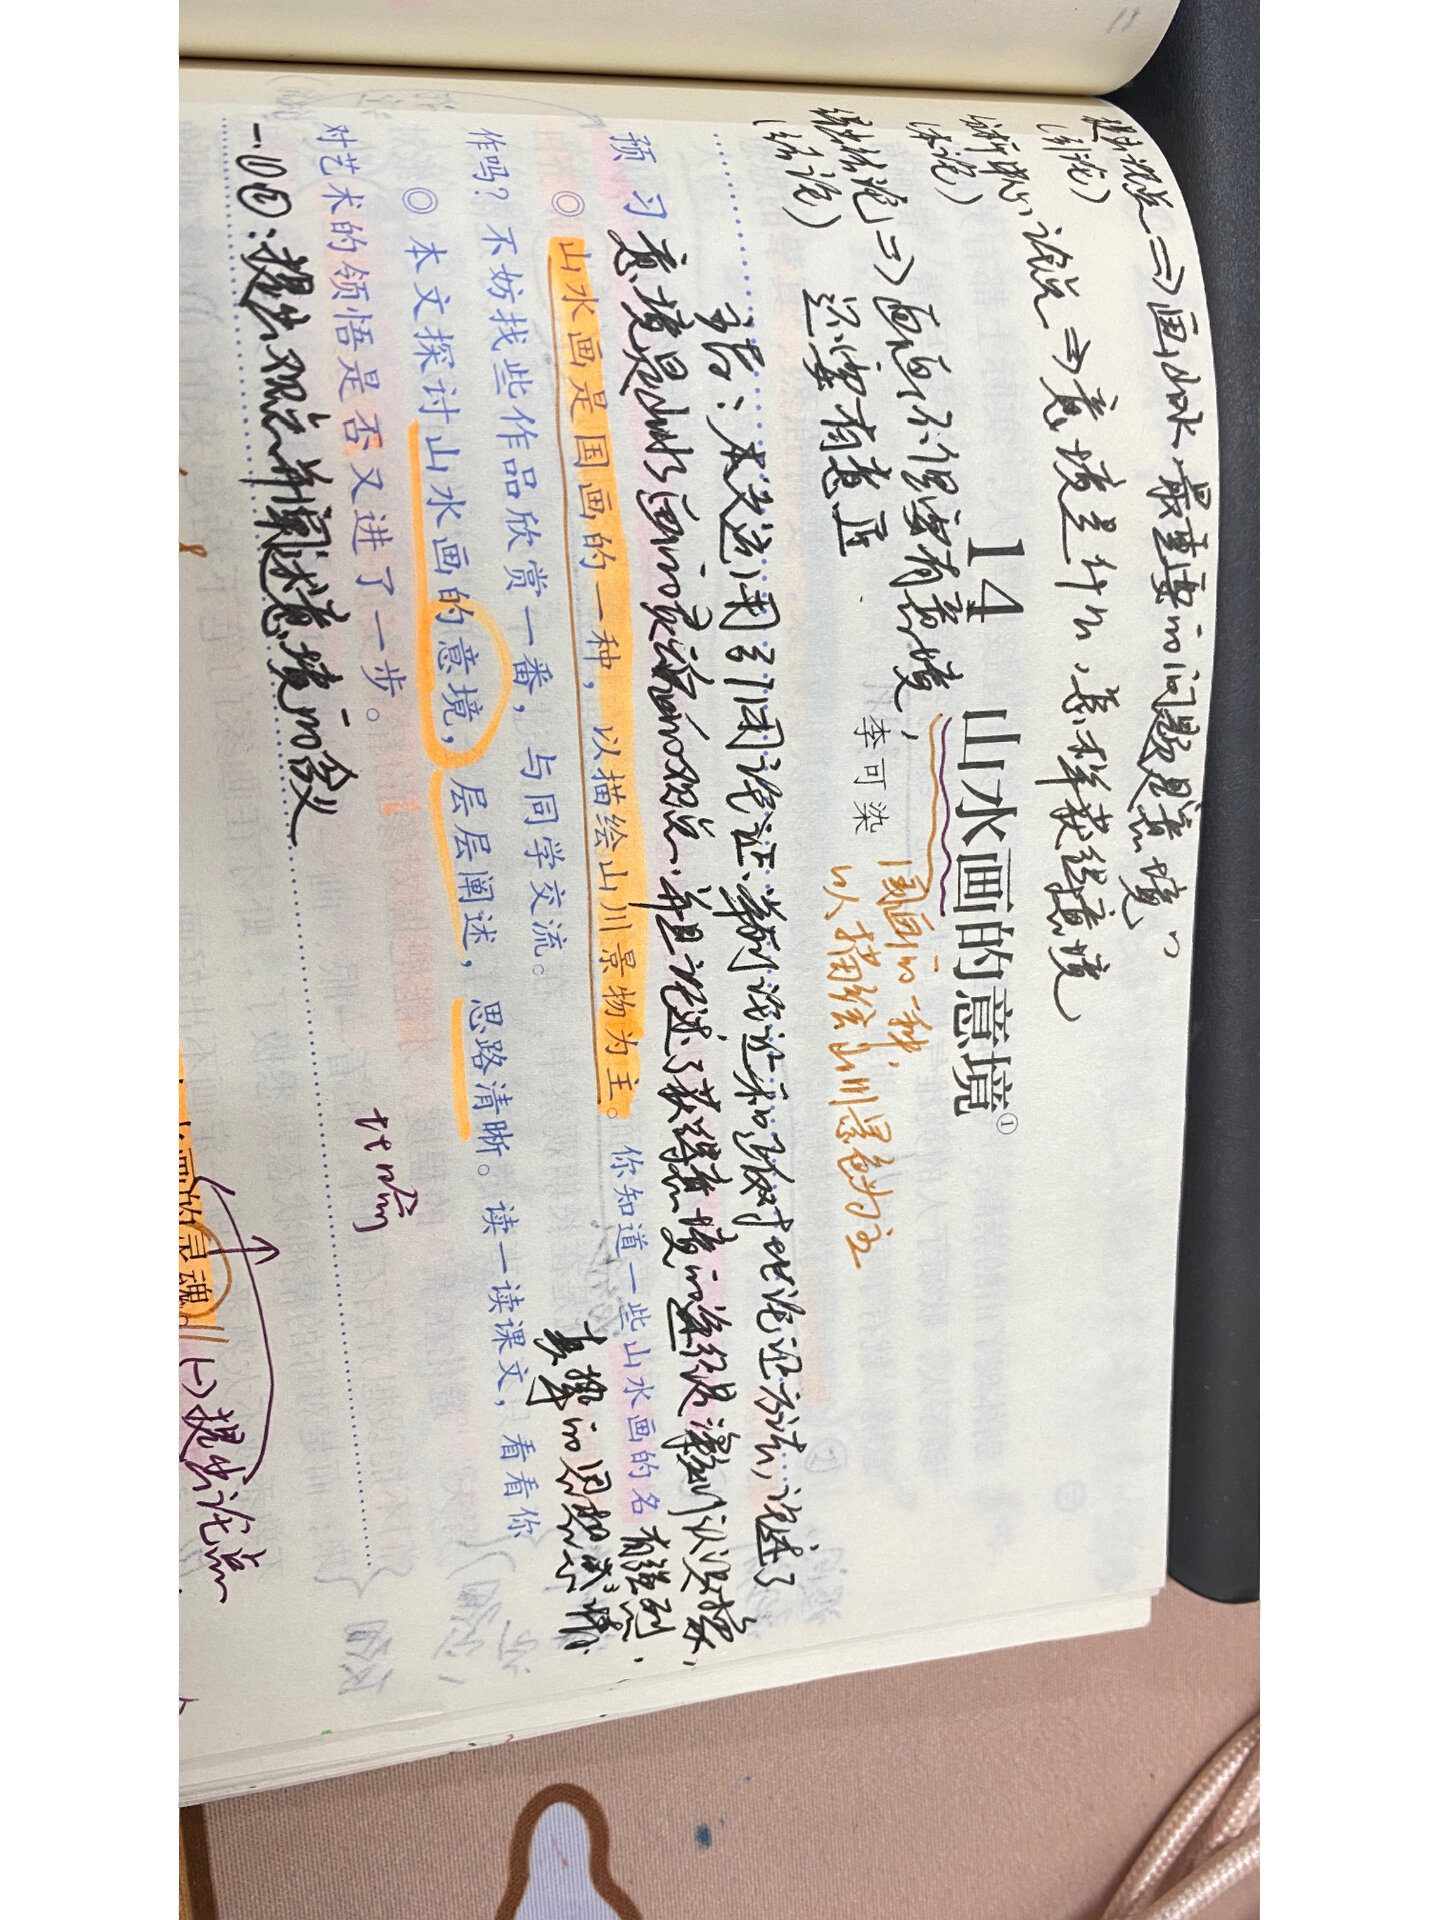 提出论点⇒画山水,最重要的问题是"意境"
(引论)
分析中心论点⇒意境是什么,怎样获得意境
(本论)
得出结论⇒画画不但要有意境,
(结论) 还需要有意匠
14 山水画的意境①
李可染
国画的一种,
以描绘山川景色为主
主旨:本文运用引用论证、举例论证和正反对比论证方法,论述了
意境是山水画的灵魂的观点,并且论述了获得意境的途径是深刻认识对象,
有强烈、
真挚的思想感情
预 习
◎ 山水画是国画的一种,以描绘山川景物为主。你知道一些山水画的名
作吗?不妨找些作品欣赏一番,与同学交流。
◎ 本文探讨山水画的意境,层层阐述,思路清晰。读一读课文,看看你
对艺术的领悟是否又进了一步。
比喻
一.(1)(2):提出观点并阐述意境的含义
画的灵魂。
(一)提出论点